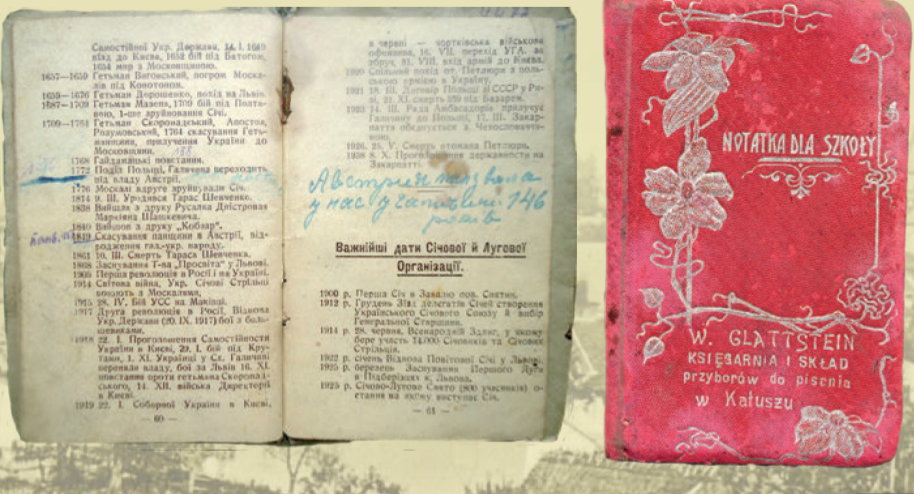 Самостійної Укр. Держава, 14. I. 1649
візд до Києва, 1652 бій під Батогом,
1654 мир з Московщиною.
1657—1659 Гетьман Виговський, погром Моска-
лів під Конотопом.
1639—1676 Гетьман Дорошенко, похід на Львів.
1687—1709 Гетьман Мазепа, 1709 бій під Полта-
вою, 1-ше зруйновання Січі.
1709—1764 Гетьман Скоропадський, Апостол,
Розумовський, 1764 скасування Геть-
манщини, прилучення України до
Московщини.
1768 Гайдамацькі повстання.
1772 Поділ Польщі, Галичина переходить
під владу Австрії.
1776 Москалі вдруге зруйнували Січ.
1814 9. III. Уродився Тарас Шевченко.
1838 Вийшла з друку Русалка Дністровая
Маркіяна Шашкевича.
1840 Вийшов з друку „Кобзар".
1849 Скасування панщини в Австрії, від-
родження гал.-укр. народу.
1861 10. III. Смерть Тараса Шевченка.
1868 Заснування Т-ва „Просвіта" у Львові.
1905 Перша революція в Росії і на Україні.
1914 Світова війна, Укр. Січові Стрільці
воюють з Москалями.
1915 28. IV. Бій УСС на Маківці.
1917 Друга революція в Росії, Віднова
Укр. Держави (20. IX. 1917) бої з боль-
шевиками.
1918 22. I. Проголошення Самостійности
України в Києві, 29. I. бій під Кру-
тами, 1. XI. Українці у Сх. Галичині
переняли владу, бої за Львів 16. XI.
повстання проти гетьмана Скоропад-
ського, 14. XII. війська Директорії
в Києві.
1919 22. I. Соборної України в Києві,
— 60 —
в червні — чортківська військова
офензива, 16. VII. перехід УГА. за
збруч, 31. VIII. вхід армії до Києва.
1920 Спільний похід от. Петлюри з поль-
ською армією в Україну.
1921 18. III. Договір Польщі й СССР у Ри-
зі, 21. XI. смерть 359 під Базаром.
1923 14. III. Рада Амбасадорів прилучує
Галичину до Польщі, 17. III. Закар-
паття обєднується з Чехословаччи-
ною.
1926 25. V. Смерть отамана Петлюри.
1938 8. X. Проголошення державности на
Закарпатті.
Австрія
у нас у Галичині 146
років
Важнійші дати Січової й Лугової
Організації.
1900 р. Перша Січ в Завалю пов. Снятин.
1912 р. Грудень Зїзд делегатів Січей створення
Українського Січового Союзу й вибір
Генеральної Старшини.
1914 р. 28. червня, Всенародній Здвиг, у якому
бере участь 14.000 Січовиків та Січових
Стрільців.
1922 р. січень Віднова Повітової Січі у Львові.
1925 р. березень Заснування Першого Луга
в Підберізцях к. Львова.
1925 р. Січово-Лугове Свято (800 учасників) о-
стання на якому виступає Січ.
— 61 —
NOTATKA DLA SZKOŁY
W. GLATTSTEIN
KSIĘGARNIA I SKŁAD
przyborów do pisania
w Kałuszu